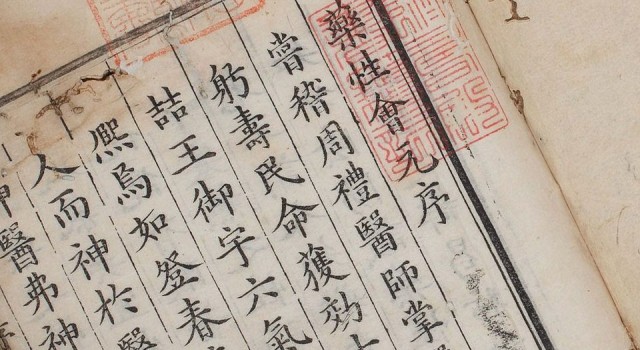 藥性會元序
嘗稽周禮醫師掌
躬壽民命獲効
喆王御宇六氣
熈焉如登春
人而神於醫
醫弗神